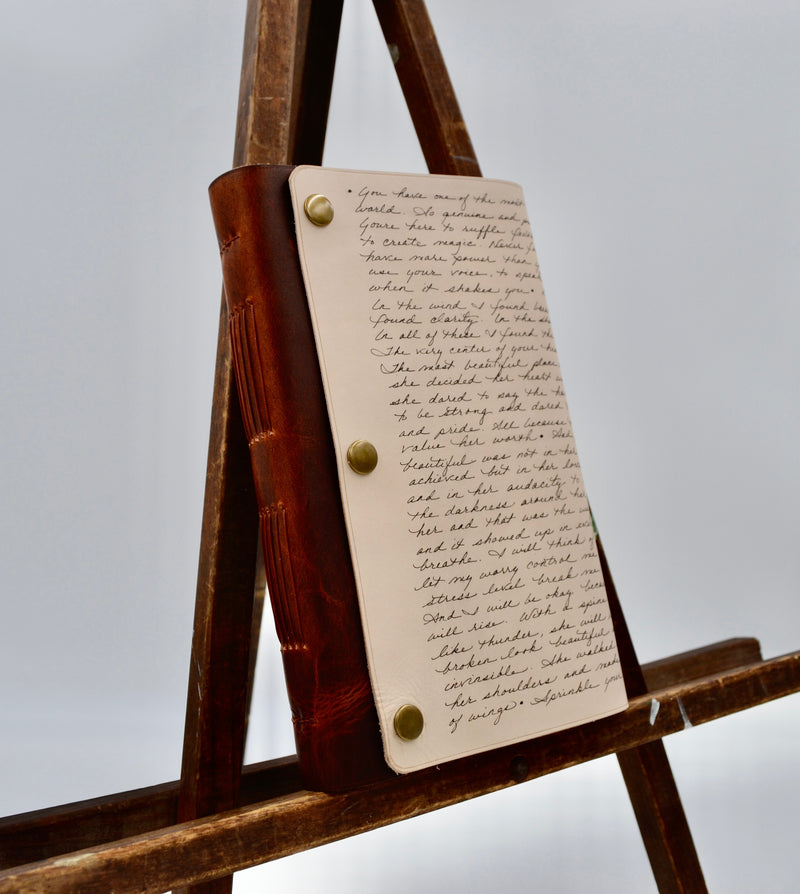 • You have one of the most
world. So genuine and
You're here to ruffle
to create magic. Never
have more power than
use your voice, to speak
when it shakes you •
In the wind I found
found clarity. In the
In all of these I found the
The very center of your
The most beautiful place
she decided her heart
she dared to say the
to be strong and dared
and pride. All because
value her worth • And
beautiful was not in her
achieved but in her
and in her audacity to
the darkness around her
her and that was the
and it showed up in
breathe. I will think
let my worry control me
stress level break me
And I will be okay because
will rise. With a spine
like thunder, she will
broken look beautiful
invinsible. She walked
her shoulders and made
of wings • Sprinkle your